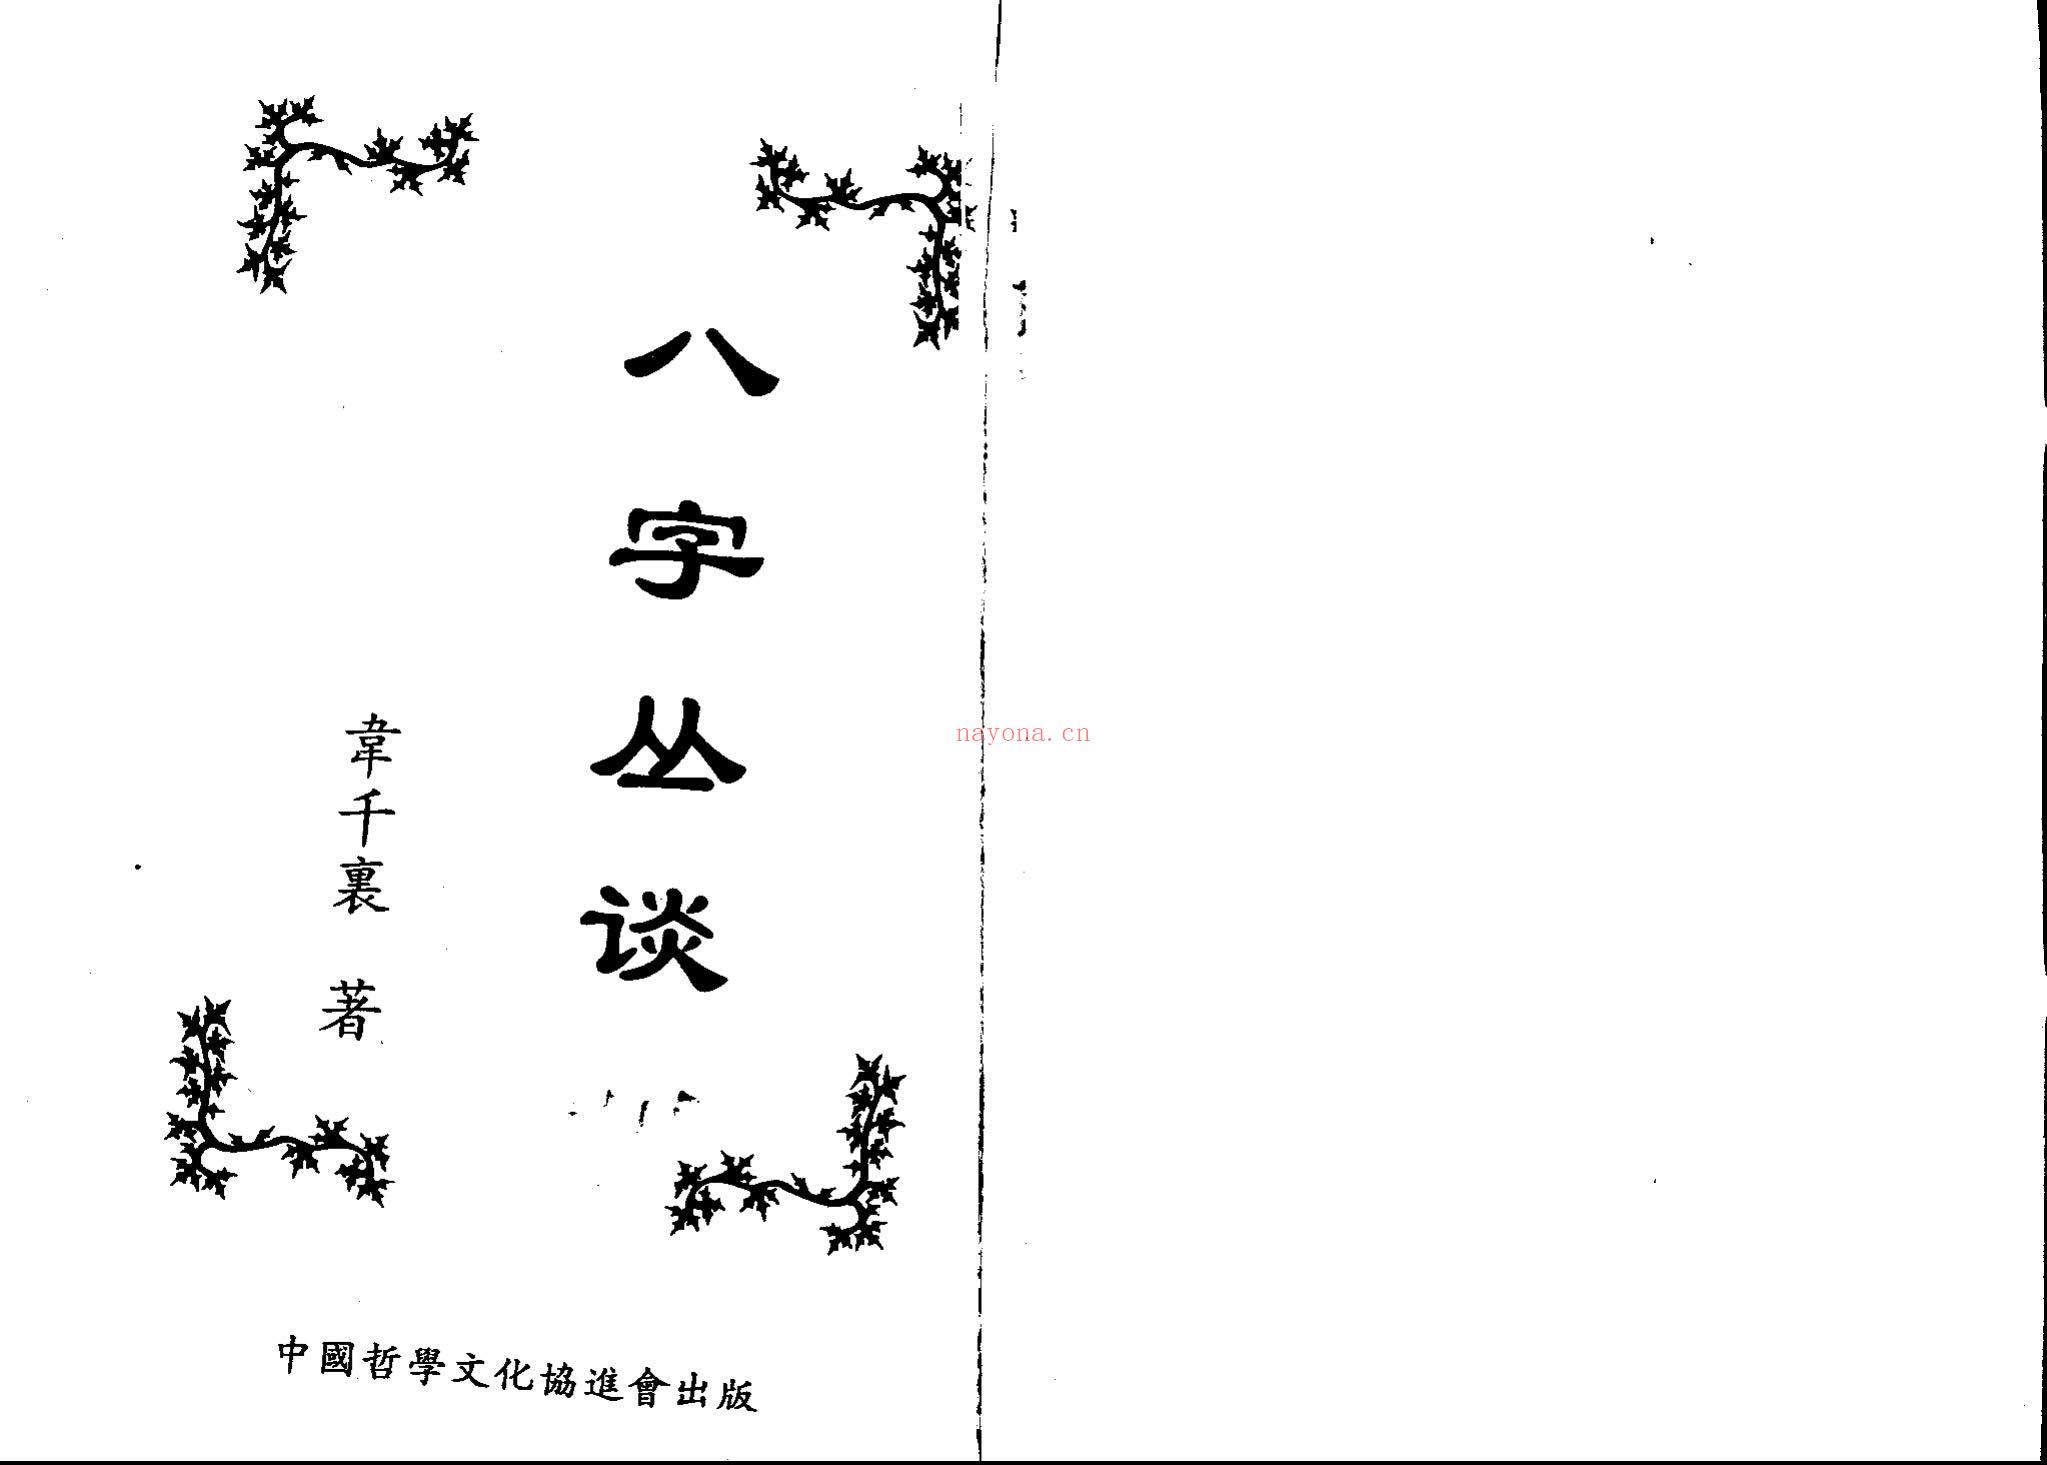 八字丛谈
韋千裏 著
中國哲學文化協進會出版
nayona.cn